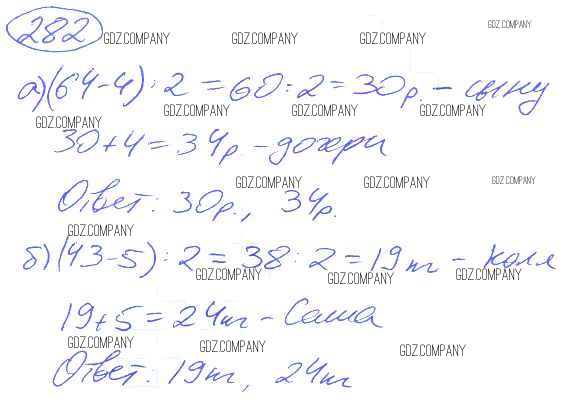 282
GDZ.COMPANY GDZ.COMPANY GDZ.COMPANY GDZ.COMPANY
а) (64-4) : 2 = 60 : 2 = 30р. - сыну
GDZ.COMPANY GDZ.COMPANY GDZ.COMPANY GDZ.COMPANY
30 + 4 = 34р. - дочери
GDZ.COMPANY GDZ.COMPANY GDZ.COMPANY
Ответ: 30р., 34р.
GDZ.COMPANY
б) (43-5) : 2 = 38 : 2 = 19 т - Коля
GDZ.COMPANY GDZ.COMPANY GDZ.COMPANY
19 + 5 = 24 т - Саша
GDZ.COMPANY GDZ.COMPANY GDZ.COMPANY
Ответ: 19 т, 24 т